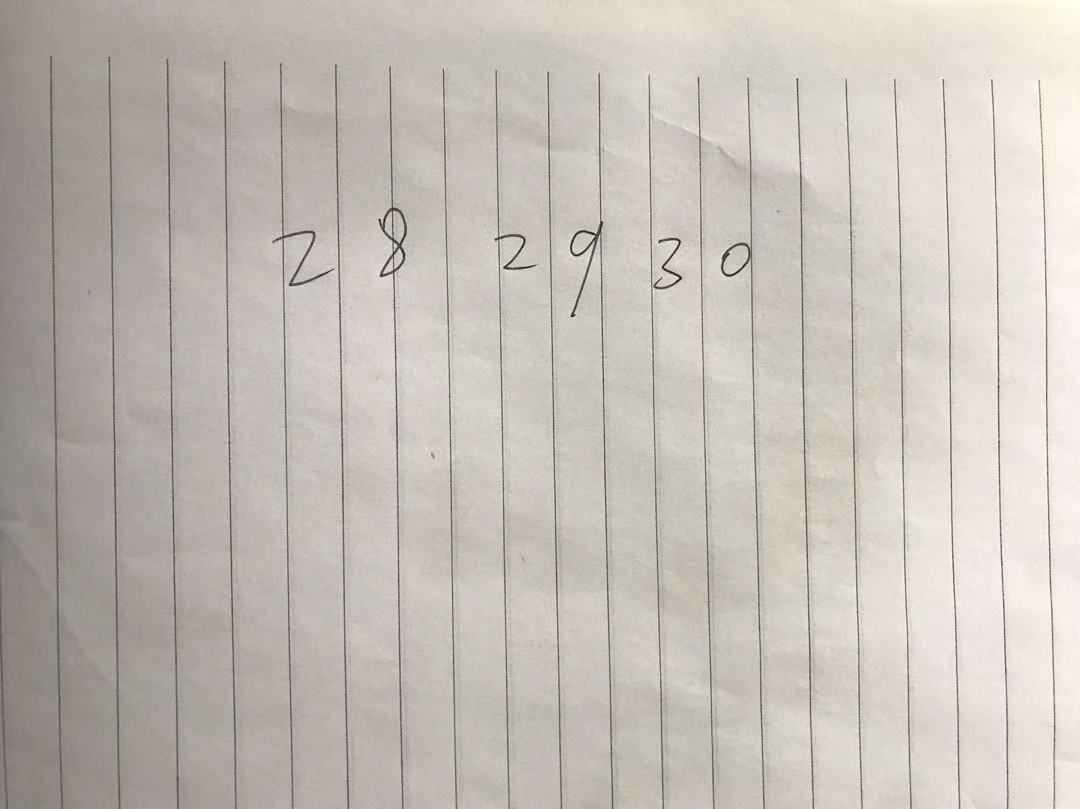 28 29 30